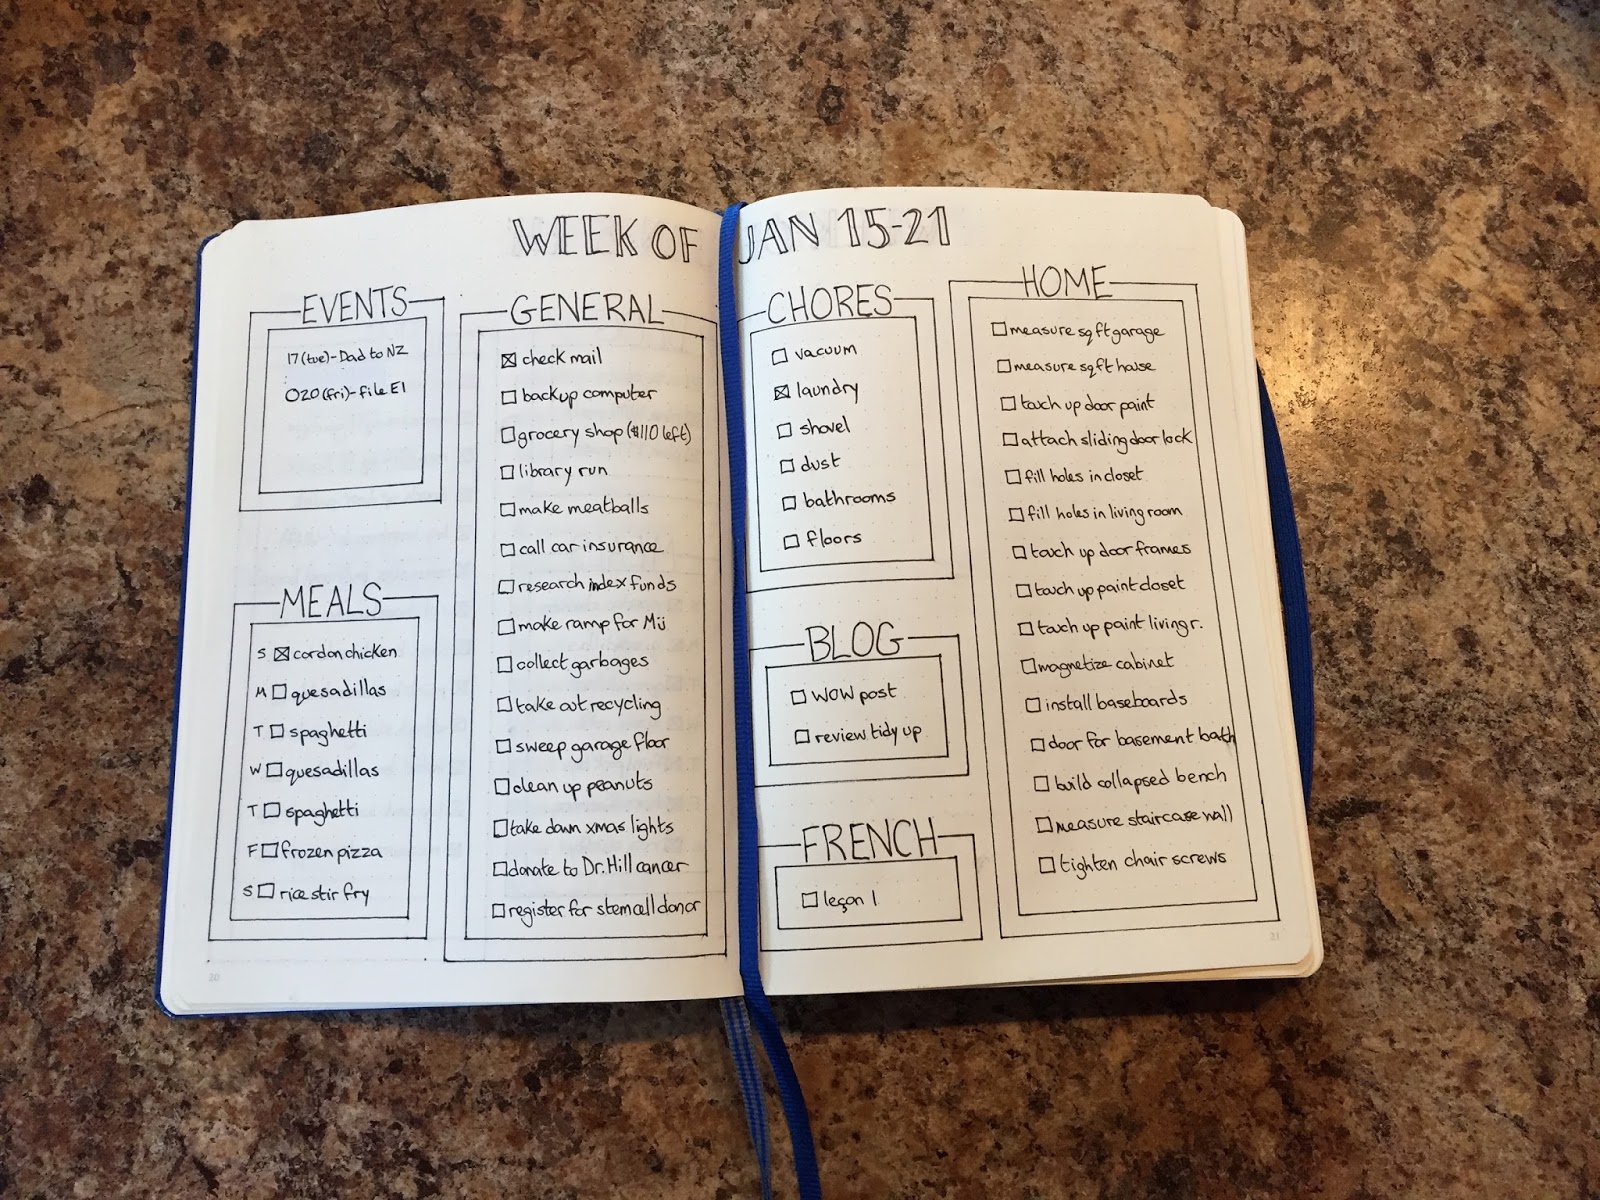 WEEK OF JAN 15-21
EVENTS
17(tue)-Dad to NZ
O20(fri)-file EI
MEALS
S cordon chicken
M quesadillas
T spaghetti
W quesadillas
T spaghetti
F frozen pizza
S rice stir fry
20
GENERAL
check mail
backup computer
grocery shop ($110 left)
library run
make meatballs
call car insurance
research index funds
make ramp for Mü
collect garbages
take out recycling
sweep garage floor
clean up peanuts
take down xmas lights
donate to Dr. Hill cancer
register for stem cell donor
CHORES
vacuum
laundry
shovel
dust
bathrooms
floors
BLOG
WOW post
review tidy up
FRENCH
leçon 1
HOME
measure sq ft garage
measure sq ft house
touch up door paint
attach sliding door lock
fill holes in closet
fill holes in living room
touch up door frames
touch up paint closet
touch up paint living r.
magnetize cabinet
install baseboards
door for basement bath
build collapsed bench
measure staircase wall
tighten chair screws
21